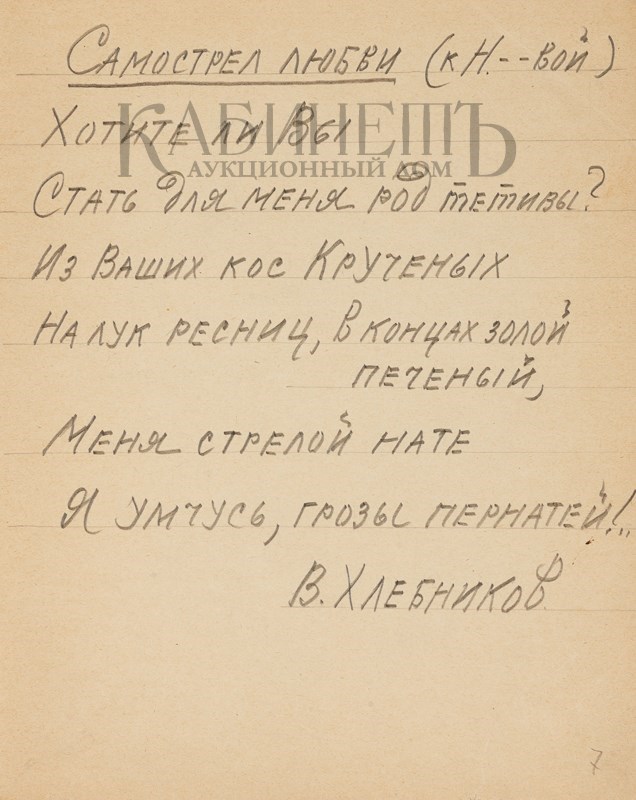 Самострел любви (к Н.--вой)
КАБИНЕТЪ
Хотите ли Вы
АУКЦИОННЫЙ ДОМ
Стать для меня род тетивы?
Из Ваших кос Крученых
На лук ресниц, в концах золой
печеный,
Меня стрелой нате
Я умчусь, грозы пернатей!..
В. Хлебников
7